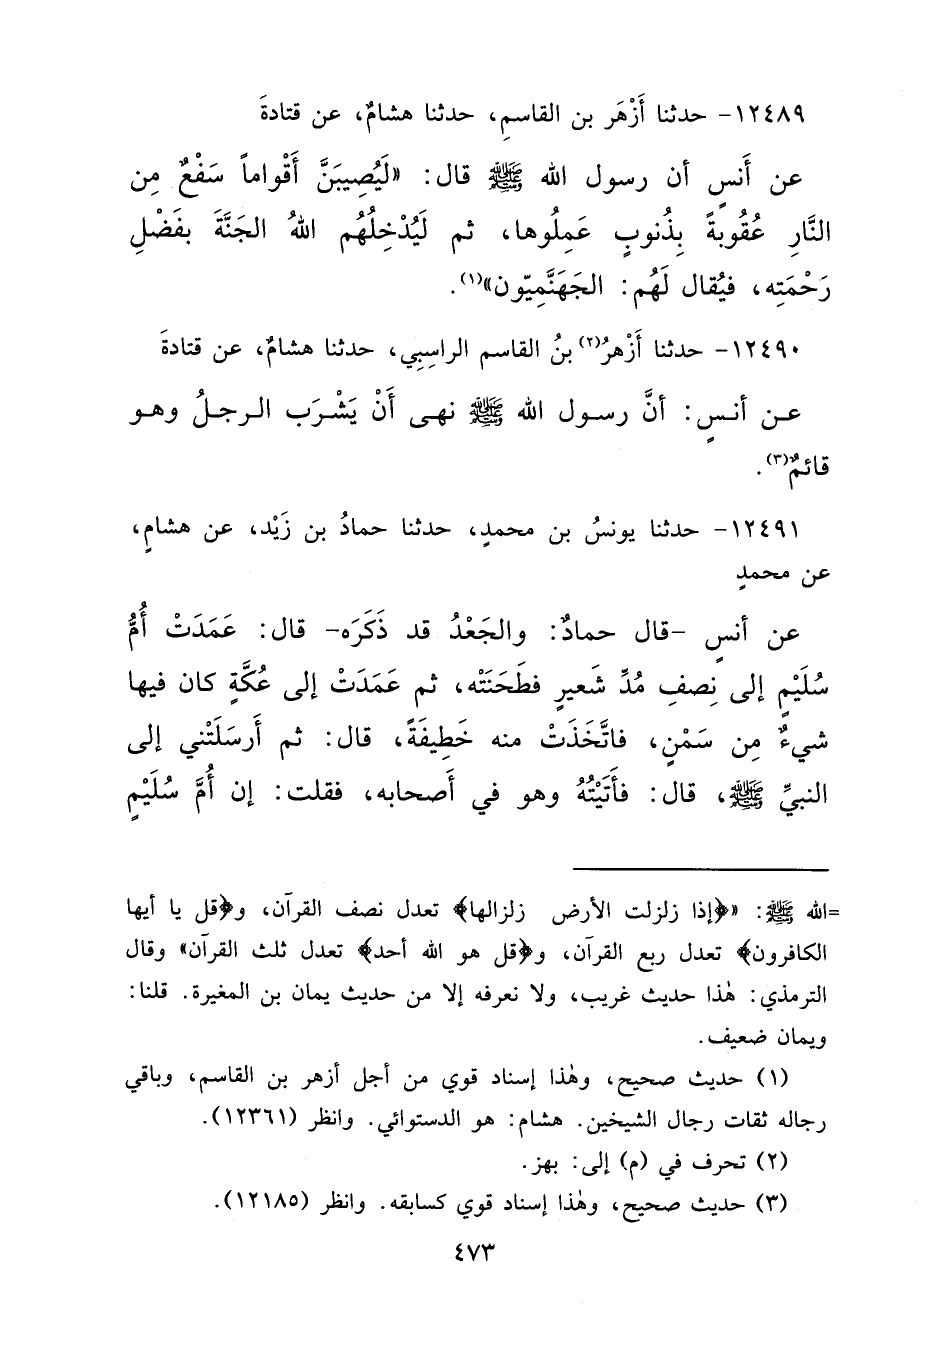 ١٢٤٨٩- حدثنا أَزْهَر بن القاسمِ، حدثنا هشامٌ، عن قتادةَ
عن أَنسٍ أن رسول الله ﷺ قال: «لَيُصِيبَنَّ أَقْواماً سَفْعٌ مِن
النَّارِ عُقُوبةً بِذُنوبٍ عَمِلُوها، ثم لَيُدْخِلُهُم اللهُ الجَنَّةَ بفَضْلِ
رَحْمَتِه، فيُقال لَهُم: الجَهَنَّمِيّون»(١).
١٢٤٩٠- حدثنا أَزْهرُ(٢) بنُ القاسم الراسِبِي، حدثنا هشامٌ، عن قتادةَ
عن أنسٍ: أنَّ رسول الله ﷺ نهى أَنْ يَشْرَب الرجلُ وهو
قائمٌ(٣).
١٢٤٩١- حدثنا يونسُ بن محمدٍ، حدثنا حمادُ بن زَيْد، عن هشامٍ،
عن محمدٍ
عن أنسٍ -قال حمادٌ: والجَعْدُ قد ذَكَرَه- قال: عَمَدَتْ أُمُّ
سُلَيْمٍ إلى نِصفِ مُدِّ شَعيرٍ فطَحَنَتْه، ثم عَمَدَتْ إلى عُكَّةٍ كان فيها
شيءٌ مِن سَمْنٍ، فاتَّخَذَتْ منه خَطِيفَةً، قال: ثم أَرسَلَتْني إلى
النبيِّ ﷺ، قال: فأَتَيْتُهُ وهو في أَصحابه، فقلت: إن أُمَّ سُلَيْمٍ
=الله ﷺ: «﴿إذا زلزلت الأرض زلزالها﴾ تعدل نصف القرآن، و﴿قل يا أيها
الكافرون﴾ تعدل ربع القرآن، و﴿قل هو الله أحد﴾ تعدل ثلث القرآن» وقال
الترمذي: هٰذا حديث غريب، ولا نعرفه إلا من حديث يمان بن المغيرة. قلنا:
ويمان ضعيف.
(١) حديث صحيح، وهٰذا إسناد قوي من أجل أزهر بن القاسم، وباقي
رجاله ثقات رجال الشيخين. هشام: هو الدستوائي. وانظر (١٢٣٦١).
(٢) تحرف في (م) إلى: بهز.
(٣) حديث صحيح، وهٰذا إسناد قوي كسابقه. وانظر (١٢١٨٥).
٤٧٣